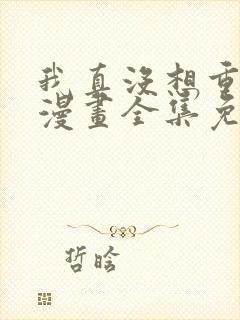 我真没想重
漫畫全集免
哲晗